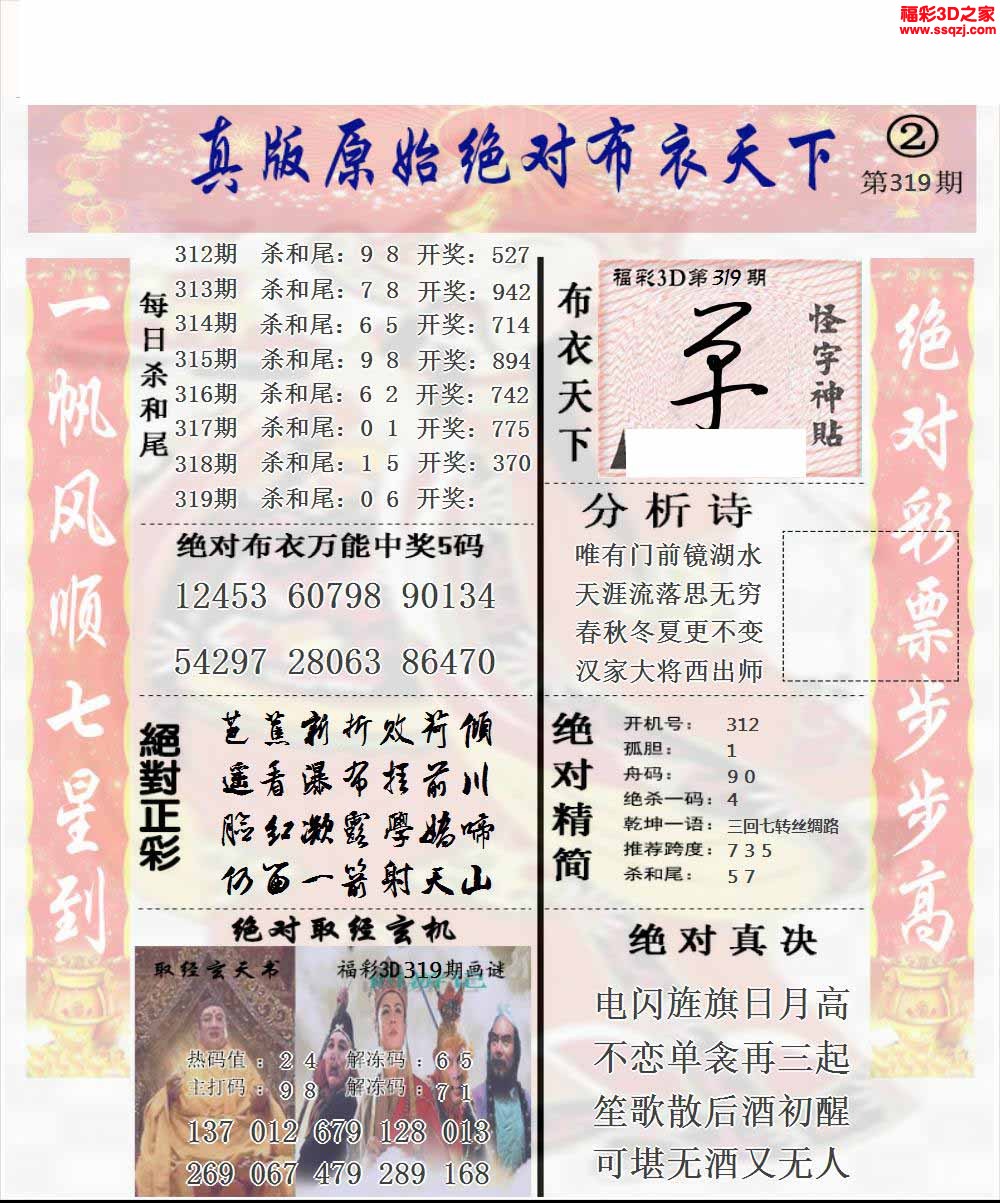 福彩3D之家
www.ssqzj.com
真版原始绝对布衣天下
②
第319期
一帆风顺七星到
每日杀和尾
312期 杀和尾：9 8 开奖：527
313期 杀和尾：7 8 开奖：942
314期 杀和尾：6 5 开奖：714
315期 杀和尾：9 8 开奖：894
316期 杀和尾：6 2 开奖：742
317期 杀和尾：0 1 开奖：775
318期 杀和尾：1 5 开奖：370
319期 杀和尾：0 6 开奖：
绝对布衣万能中奖5码
12453 60798 90134
54297 28063 86470
絕對正彩
芭蕉新折败荷倾
遥看瀑布挂前川
脸红凝露學嬌啼
仍留一箭射天山
绝对取经玄机
取经玄天书
福彩3D319期画谜
热码值：2 4 解冻码：6 5
主打码：9 8 解冻码：7 1
137 012 679 128 013
269 067 479 289 168
布衣天下
福彩3D第319期
怪字神貼
分析诗
唯有门前镜湖水
天涯流落思无穷
春秋冬夏更不变
汉家大将西出师
绝对精简
开机号： 312
孤胆： 1
舟码： 9 0
绝杀一码：4
乾坤一语：三回七转丝绸路
推荐跨度：7 3 5
杀和尾： 5 7
绝对真决
电闪旌旗日月高
不恋单衾再三起
笙歌散后酒初醒
可堪无酒又无人
绝对彩票步步高